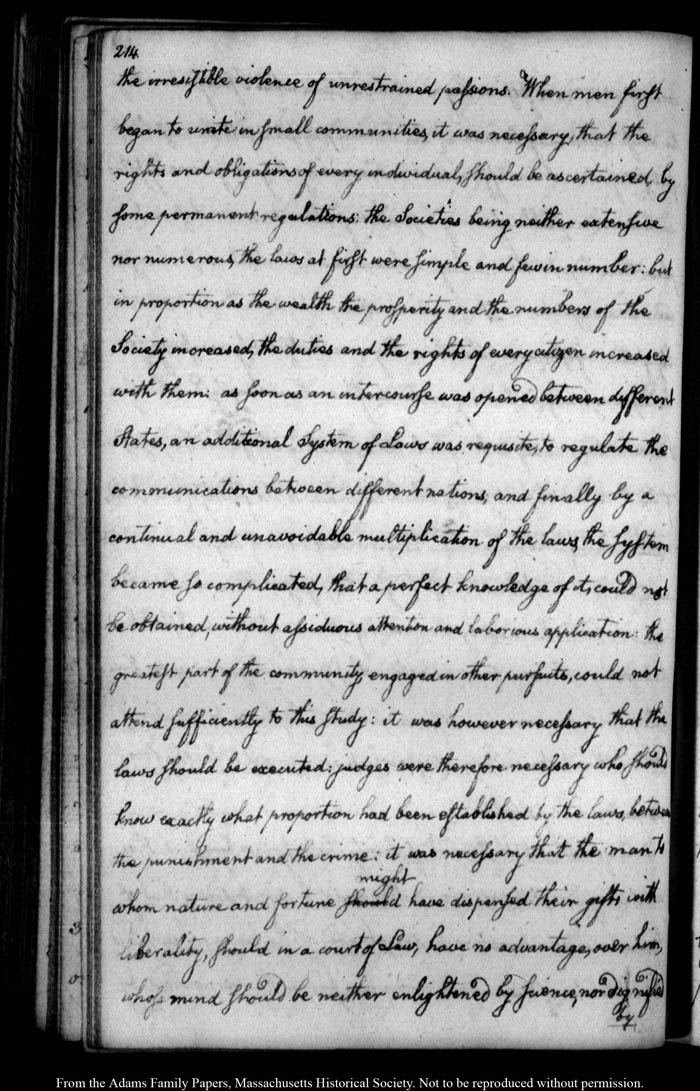 214
the irresistible violence of unrestrained passions. When men first
began to unite in small communities, it was necessary, that the
rights and obligations of every individual, should be ascertained, by
some permanent regulations: the Societies being neither extensive
nor numerous, the laws at first were simple and few in number: but
in proportion as the wealth the prosperity and the numbers of the
Society increased, the duties and the rights of every citizen increased
with them: as soon as an intercourse was opened between different
States, an additional System of Laws was requisite, to regulate the
communications between different nations; and finally by a
continual and unavoidable multiplication of the laws, the system
became so complicated, that a perfect knowledge of it, could not
be obtained, without assiduous attention and laborious application: the
greatest part of the community, engaged in other pursuits, could not
attend sufficiently to this study: it was however necessary that the
laws should be executed: judges were therefore necessary who should
know exactly what proportion had been established by the laws, between
the punishment and the crime: it was necessary that the man to
might
whom nature and fortune should have dispensed their gifts with
liberality, should in a court of Law, have no advantage, over him,
whose mind should be neither enlightened by science, nor dignified
by
From the Adams Family Papers, Massachusetts Historical Society. Not to be reproduced without permission.